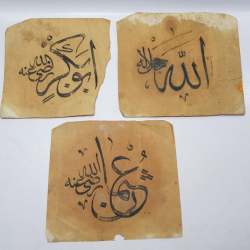 الله جل جلاله
ابو بكر رضي الله عنه
عثمان رضي الله عنه